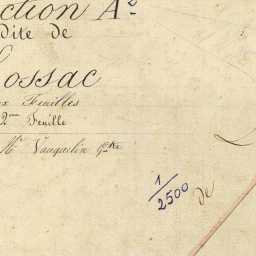 ction A²
dite de
ossac
ux Feuilles
2me Feuille
Mr Vauquelin Gtre
1/2500 de